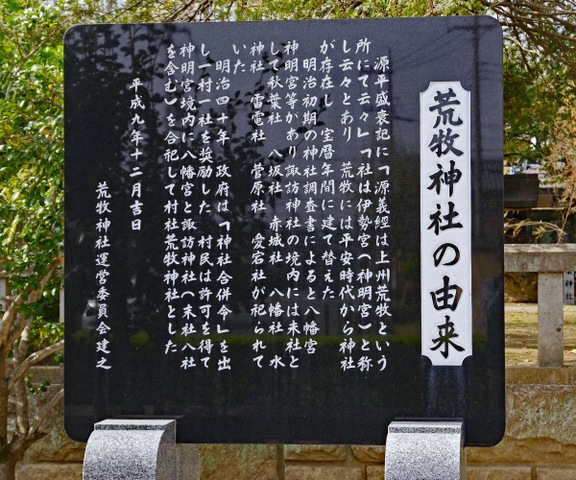 荒牧神社の由来
源平盛衰記に「源義經は上州荒牧という
所にて云々」「社は伊勢宮（神明宮）と称
し云々とあり 荒牧には平安時代から神社
が存在し 宝暦年間に建て替えた
明治初期の神社調査書によると八幡宮
神明宮等かあり諏訪神社の境内には末社と
して秋葉社 八坂社 赤城社 八幡社 水
神社 雷電社 菅原社 愛宕社が祀られて
いた
明治四十年 政府は「神社合併令」を出
し一村一社を奨励した 村民は許可を得て
神明宮境内に八幡宮と諏訪神社（末社八社
を含む）を合祀して村社荒牧神社とした
平成九年十二月吉日
荒牧神社運営委員会建之
神社